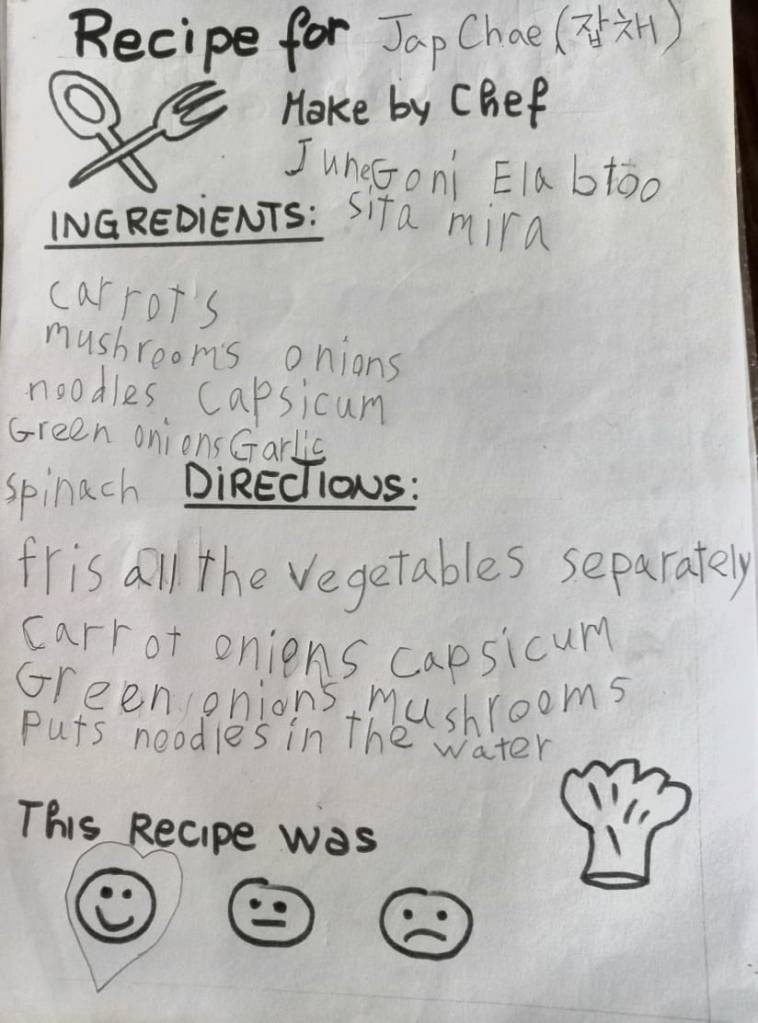 Recipe for Jap Chae (잡채)
Make by Chef
JuneGoni Ela btoo
sita mira
INGREDIENTS:
carrot's
mushroom's onions
noodles Capsicum
Green onions Garlic
spinach
DIRECTIONS:
fris all the vegetables separately
carrot onions capsicum
Green onions mushrooms
Puts noodles in the water
This Recipe was